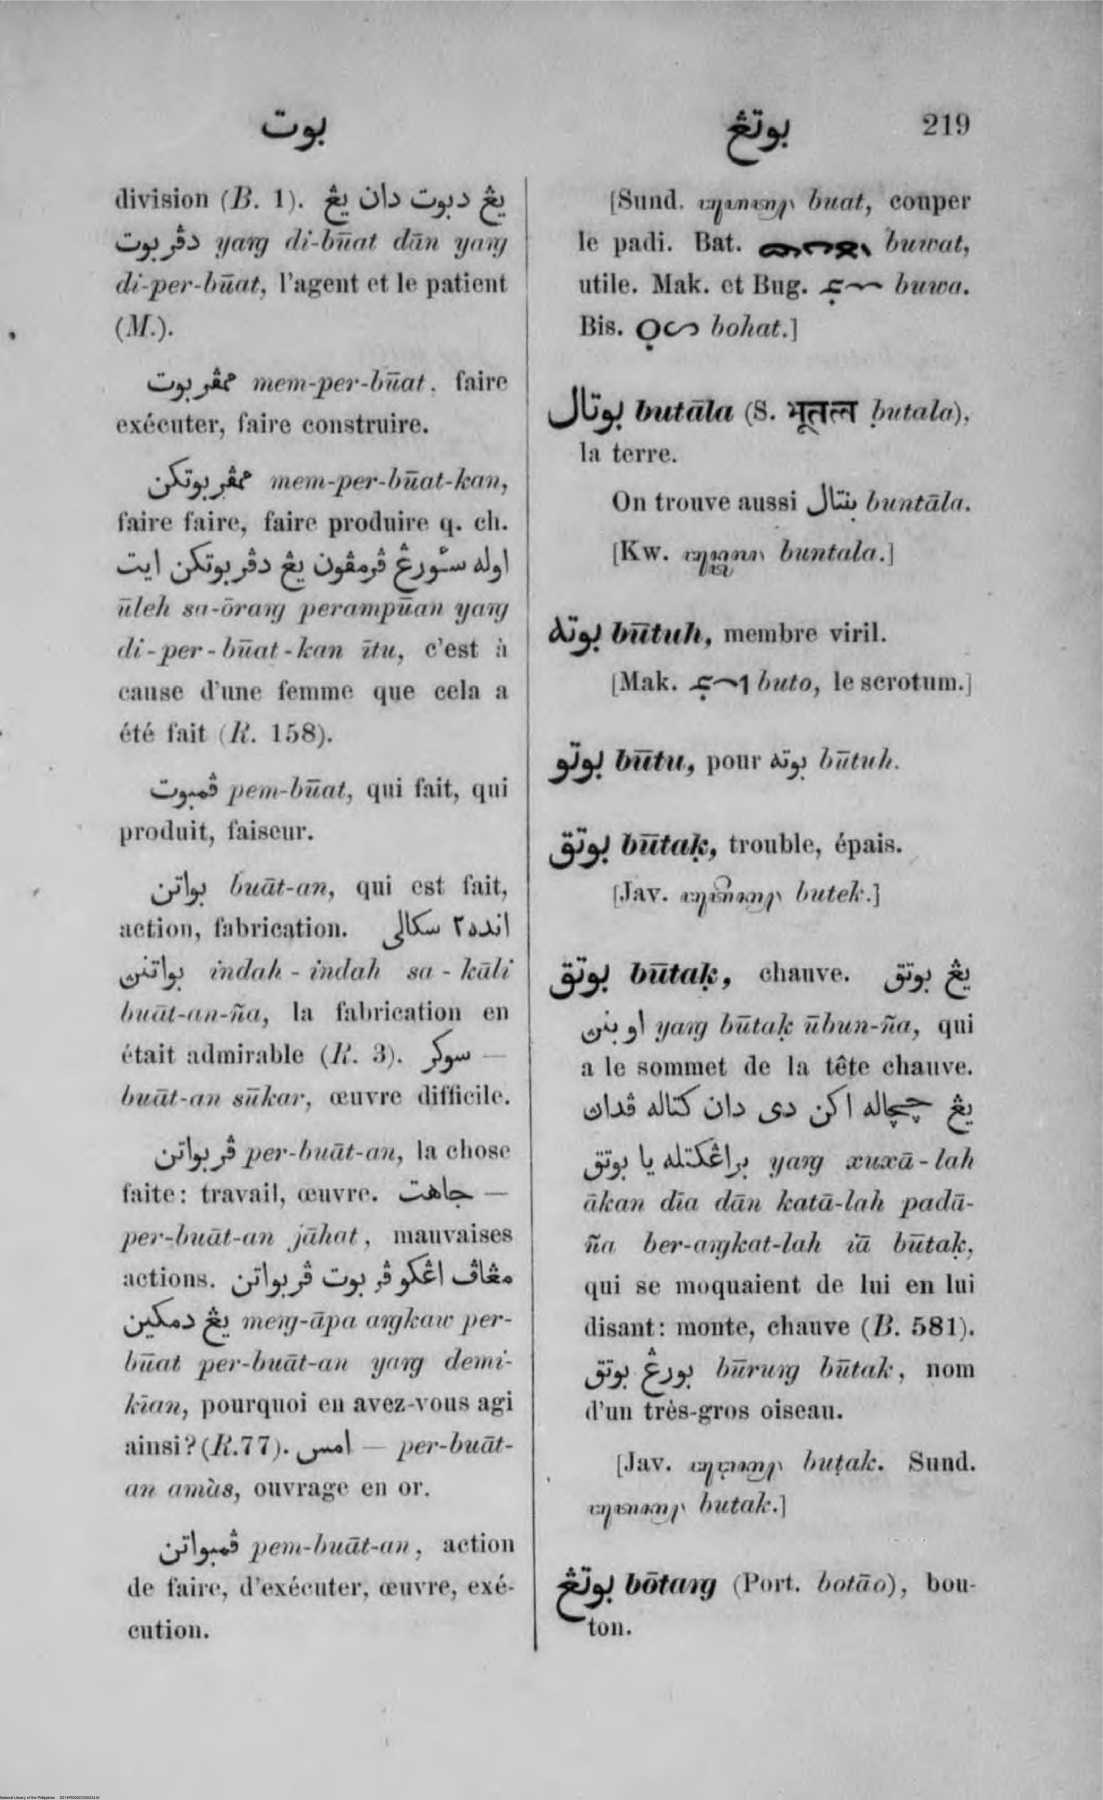 بوت
بوتڠ 219
division (B. 1). يڠ دبوت دان يڠ
دڤربوت yaŋg di-būat dān yaŋg
di-per-būat, l'agent et le patient
(M.).
ممڤربوت mem-per-būat, faire
exécuter, faire construire.
ممڤربوتكن mem-per-būat-kan,
faire faire, faire produire q. ch.
اوله سٔورڠ ڤرمڤون يڠ دڤربوتكن ايت
ūleh sa-ōraŋg perampūan yaŋg
di-per-būat-kan ītu, c'est à
cause d'une femme que cela a
été fait (R. 158).
ڤمبوت pem-būat, qui fait, qui
produit, faiseur.
بواتن buāt-an, qui est fait,
action, fabrication. انده٢ سكالى
بواتنڽ indah-indah sa-kāli
buāt-an-ña, la fabrication en
était admirable (R. 3). سوكر —
buāt-an sūkar, œuvre difficile.
ڤربواتن per-buāt-an, la chose
faite: travail, œuvre. جاهت —
per-buāt-an jāhat, mauvaises
actions. مڠاڤ اڠكو ڤربوت ڤربواتن
يڠ دمكين meŋg-āpa aŋgkaw per-
būat per-buāt-an yaŋg demi-
kīan, pourquoi en avez-vous agi
ainsi? (R. 77). امس — per-buāt-
an amàs, ouvrage en or.
ڤمبواتن pem-buāt-an, action
de faire, d'exécuter, œuvre, exé-
cution.
[Sund. buat, couper
le padi. Bat. buwat,
utile. Mak. et Bug. buwa.
Bis. bohat.]
بوتال butāla (S. भूतल ḅutala),
la terre.
On trouve aussi بنتال buntāla.
[Kw. buntala.]
بوته būtuh, membre viril.
[Mak. buto, le scrotum.]
بوتو būtu, pour بوته būtuh.
بوتق būtaḳ, trouble, épais.
[Jav. butek.]
بوتق būtaḳ, chauve. يڠ بوتق
اوبنڽ yaŋg būtaḳ ūbun-ña, qui
a le sommet de la tête chauve.
يڠ چچاله اكن دى دان كتاله ڤدان
براڠكتله يا بوتق yaŋg xuxā-lah
ākan dīa dān katā-lah padā-
ña ber-aŋgkat-lah īā būtaḳ,
qui se moquaient de lui en lui
disant: monte, chauve (B. 581).
بورڠ بوتق būruŋg būtak, nom
d'un très-gros oiseau.
[Jav. buṭak. Sund.
butak.]
بوتڠ bōtaŋg (Port. botāo), bou-
ton.